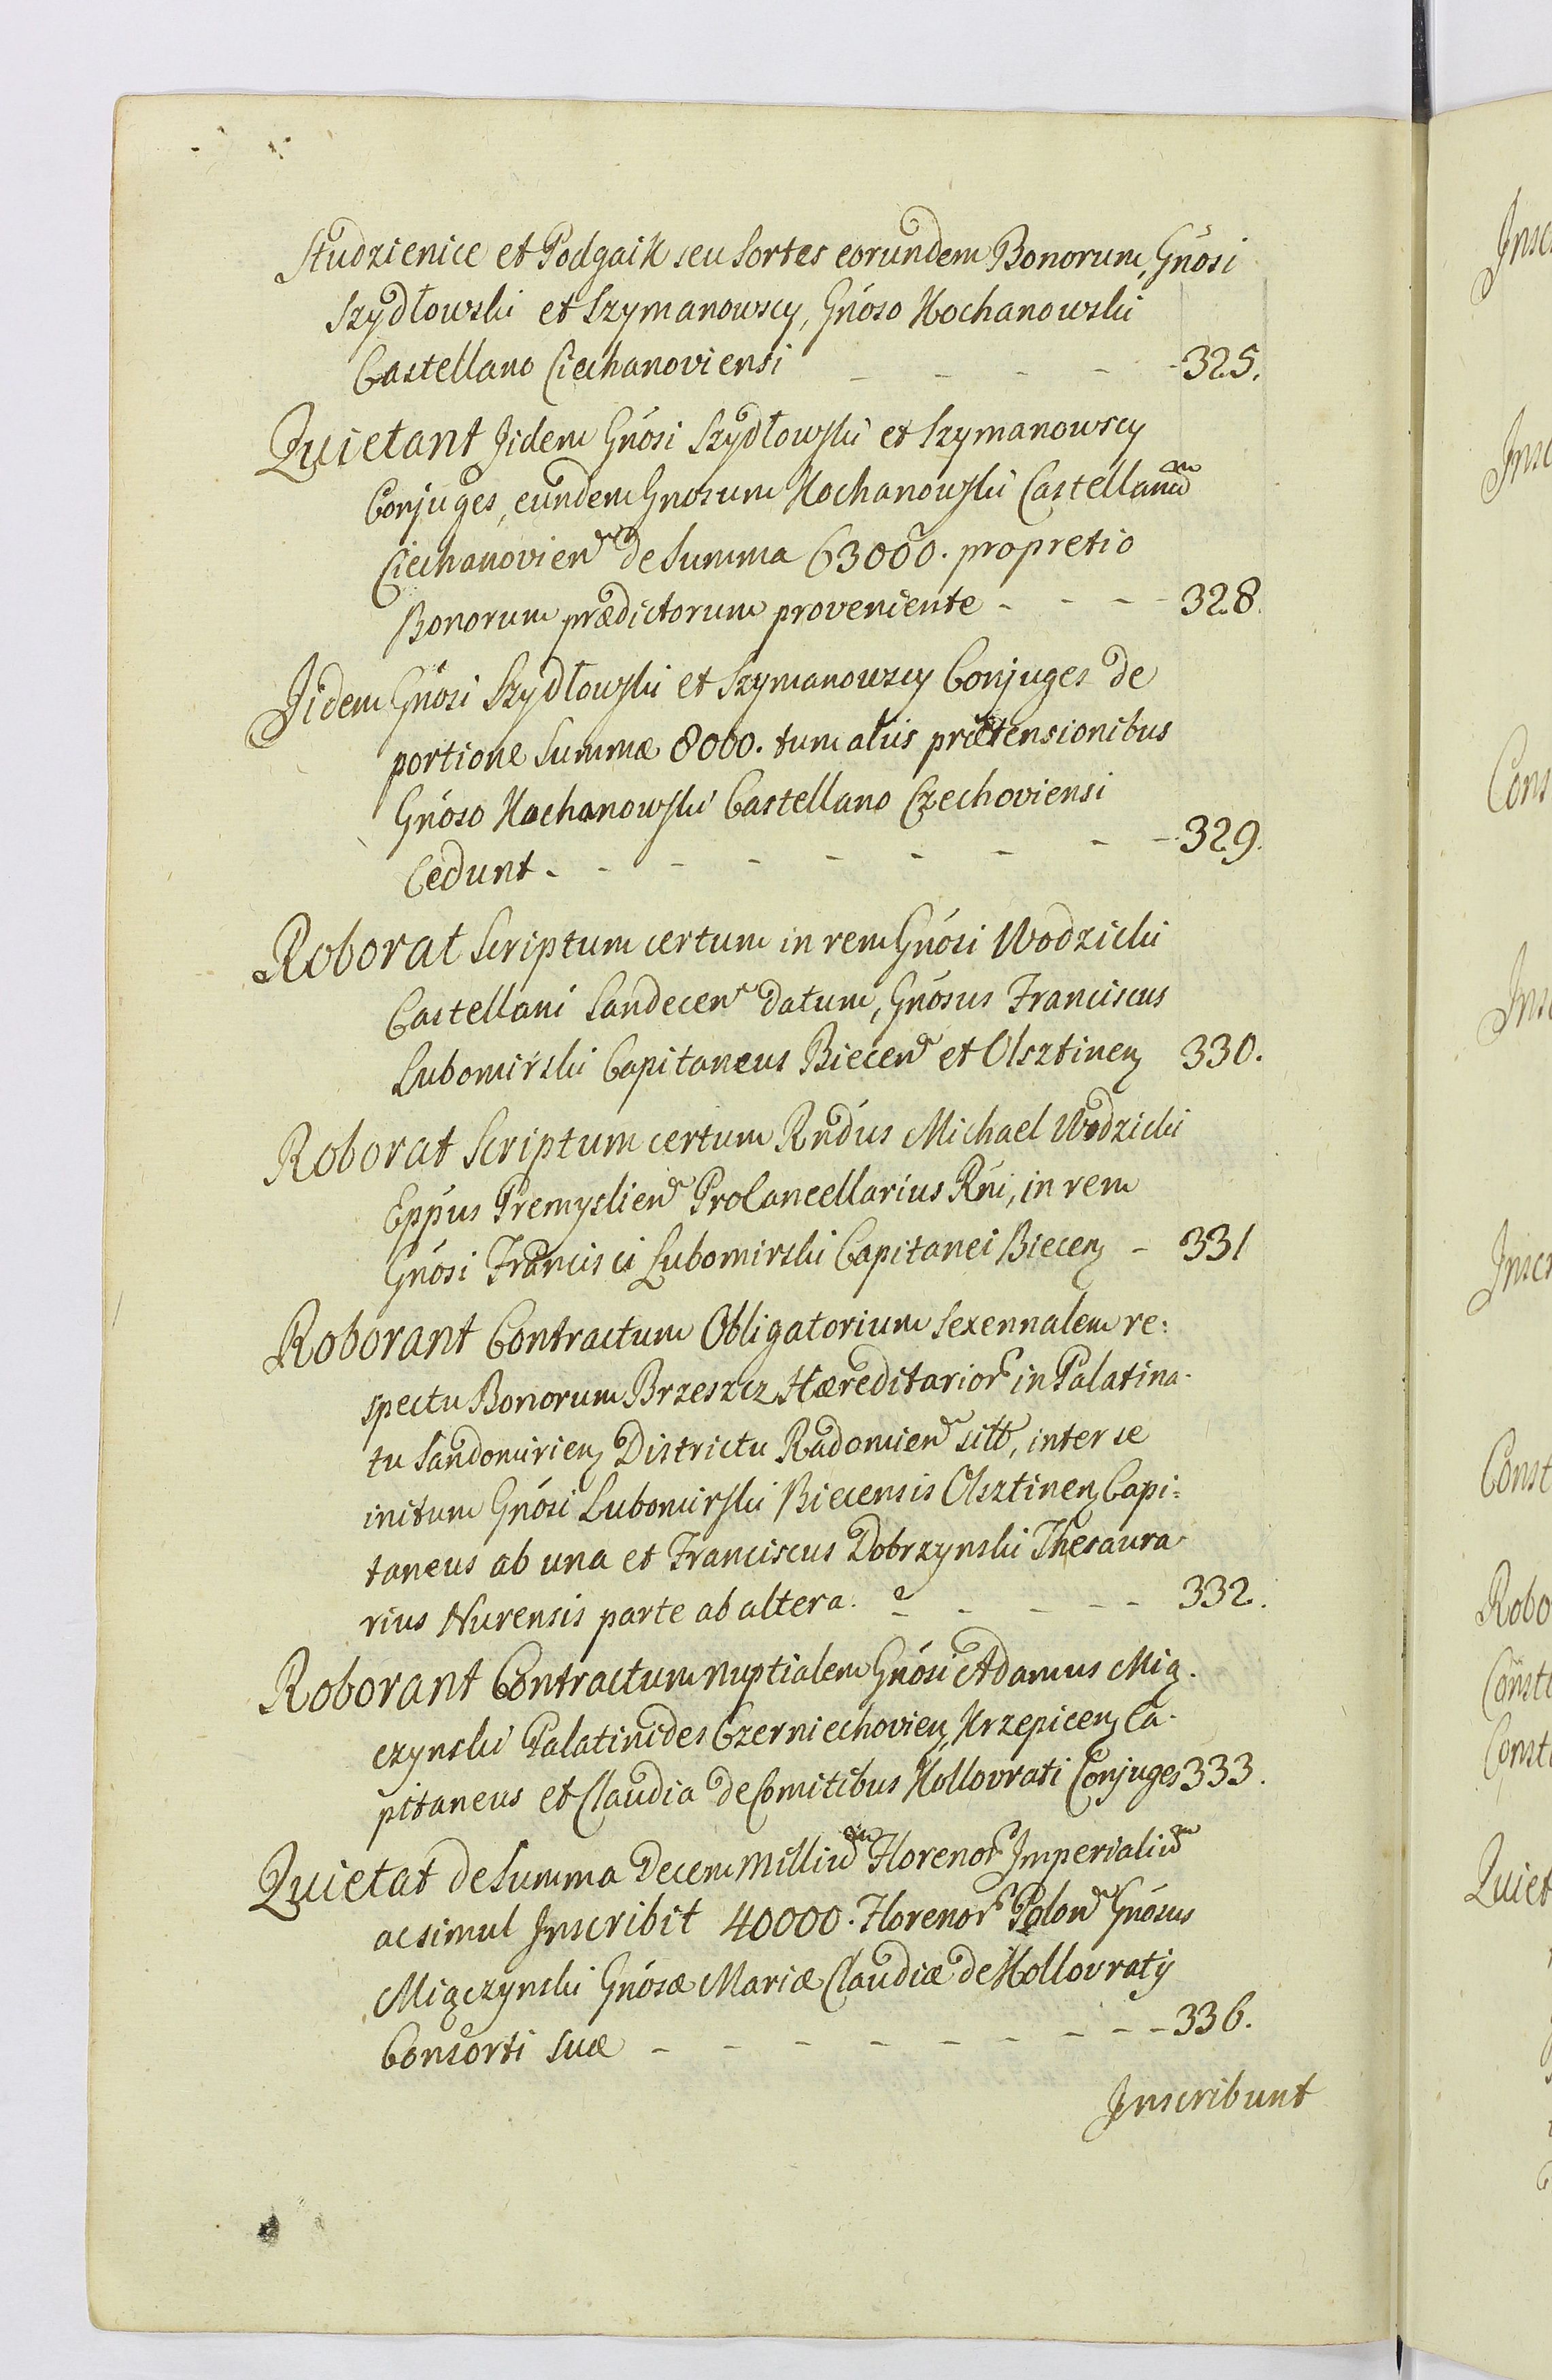 Studzienice et Podgaik seu Sortes eorundem Bonorum, Gnósi
Szydłowski et Szymanowscy, Gnóso Kochanowski
Castellano Ciechanoviensi - - - - - 325.
Quietant Jidem Gnósi Szydłowski et Szymanowscy
Conjuges, eundem Gnosum Kochanowski Castellanum
Ciechanovien de Summa 63000. pro pretio
Bonorum prædictorum proveniente - - - - 328.
Jidem Gnósi Szydłowski et Szymanowscy Conjuges de
portione Summæ 8000. tum aliis prætensionibus
Gnóso Kochanowski Castellano Czechoviensi
Cedunt - - - - - - - - 329.
Roborat Scriptum certum in rem Gnósi Wodzicki
Castellani Sandecen datum, Gnósus Franciscus
Lubomirski Capitaneus Biecen et Olsztinen 330.
Roborat Scriptum certum Rndus Michael Wodzicki
Eppus Premyslien ProCancellarius Rni, in rem
Gnósi Francisci Lubomirski Capitanei Biecen - 331
Roborant Contractum Obligatorium Sexennalem re:
spectu Bonorum Brzeszcz Hæreditarior in Palatina-
tu Sandomirien Districtu Radomien sitt, inter se
initum Gnósi Lubomirski Biecensis Olsztinen Capi:
taneus ab una et Franciscus Dobrzynski Thesaura
rius Nurensis parte ab altera. - - - - - 332.
Roborant Contractum nuptialem Gnósi Adamus Mią-
czynski Palatinides Czerniechovien, Krzepicen Ca-
pitaneus et Claudia de Comitibus Kollovrati Conjuges 333.
Quietat de Summa Decem millium Florenor Imperialium
ac simul Inscribit 40000. Florenor Polon Gnósus
Miączynski Gnósæ Mariæ Claudiæ de Kollovratÿ
Consorti Suæ - - - - - - - - 336.
Inscribunt
Cons
Const
Robo
Quiet